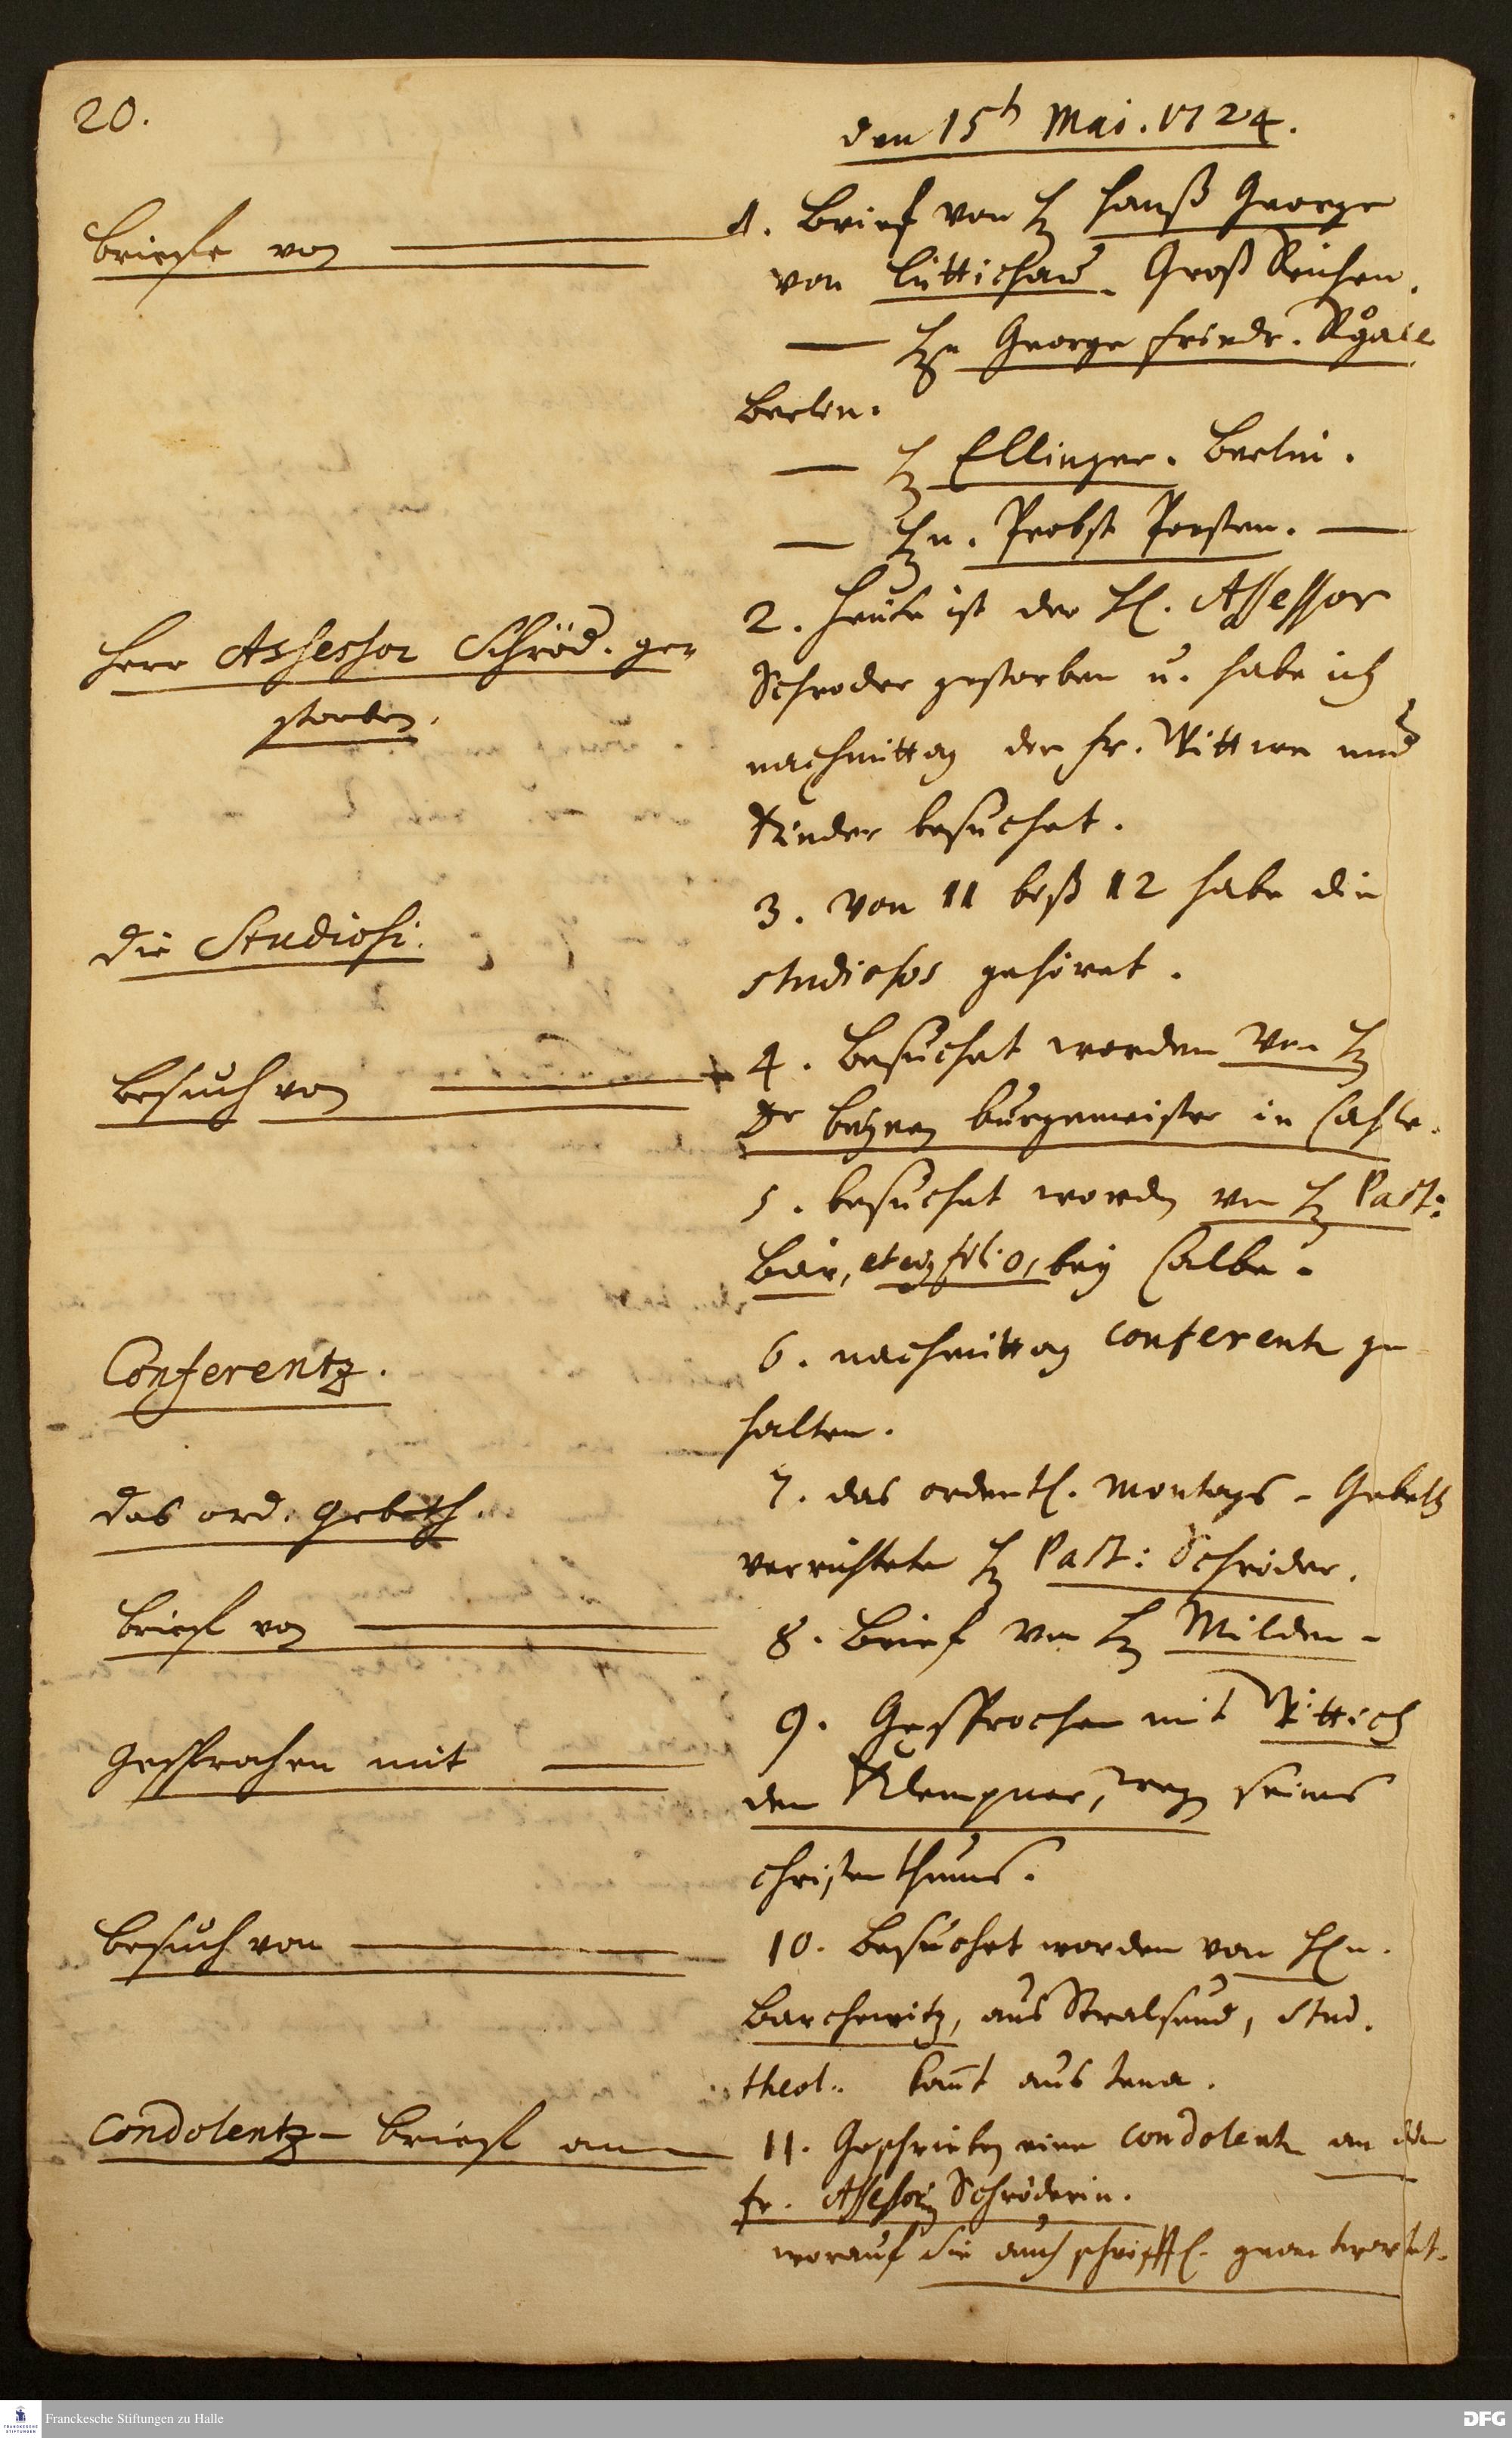 20.
den 15t Mai. 1724.
briefe von
1. Brief von H Hanß George
von Lüttichau. Groß Kuhen.
— Hn George Friedr.
Berlin.
— H Ellinger. Berlin.
— Hn. Probst Porsten. —
Herr Assessor Schröd. ge-
storben.
2. Heute ist der H. Assessor
Schroder gestorben u. habe ich
nachmittag die Fr. Wittwe und
Kinder besuchet.
die Studiosi.
3. Von 11 biß 12 habe die
studiosos gehöret.
Besuch von
4. Besuchet worden von H
Dr burgemeister in
5. besuchet worden von H Past:
Bär, et filio, bey Calbe.
Conferentz.
6. nachmittag conferentz ge-
halten.
das ord. Gebeth.
7. das ordentl. Montags-Gebeth
verrichtete H Past: Schröder.
brief von
8. Brief von H Milden.
Gesprochen mit
9. Gesprochen mit Wittich
dem Klempner, weg. seines
Christenthums.
Besuch von
10. Besuchet worden von Hn.
Barchewitz, aus Stralsund, Stud.
theol. komt aus Jena.
Condolentz-brief an
11. Geschrieben eine condolentz an die
Fr. Assessorin Schröderin.
worauf sie auch schrifftl. geantwortet.
Franckesche Stiftungen zu Halle
FRANCKESCHE STIFTUNGEN
DFG